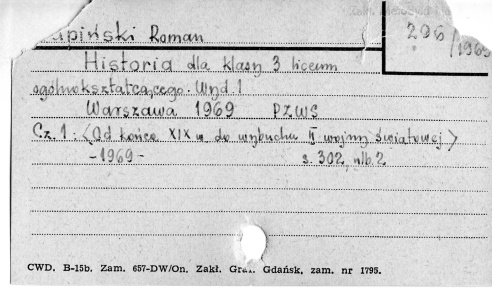 Roman
206/196
Historia dla klasy 3 liceum
ogólnokształcącego. Wyd. 1
Warszawa 1969 PZWS
Cz. 1: <Od końca XIX w do wybuchu II wojny światowej>
-1969- s. 302, nlb. 2
CWD. B-15b. Zam. 657-DW/On. Zakł. Graf. Gdańsk, zam. nr 1795.